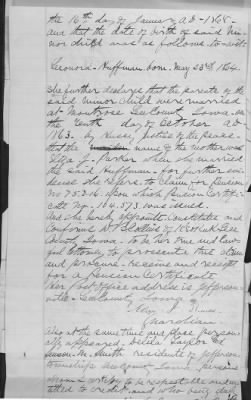 the 16th day of January A.D. 1865.
and that the date of birth of said mi-
nor child was as follows to-wit
Leonora Huffman. born. May 23d 1864.
She further declares that the parents of the
said minor child were married
at Montrose Lee County Iowa. on
the tenth day of October A.D.
1863. by Justice of the peace
that the name of the mother was
J. Parker when she married
the said Huffman. for further evi-
dence she refers to claim for Pension
No. upon which pension Certifi-
cate No. 164.573. was issued.
And she hereby appoints Constitute and
of Keokuk Lee
County Iowa. to be her true and law-
ful attorney to prosecute this claim
and procure receive and receipt
for a Pension Certificate
Her post office address is Jefferson-
ville Lee County Iowa
Guardian
Also at the same time and place person-
ally appeared. Delila Taylor &
Smith residents of Jefferson
township Lee County Iowa, persons
whom I certify to be respectable and en-
titled to credit. and who being duly